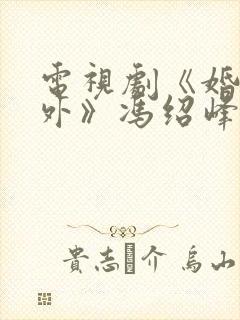 電視劇《婚
外》馮紹峰
貴志介 烏山